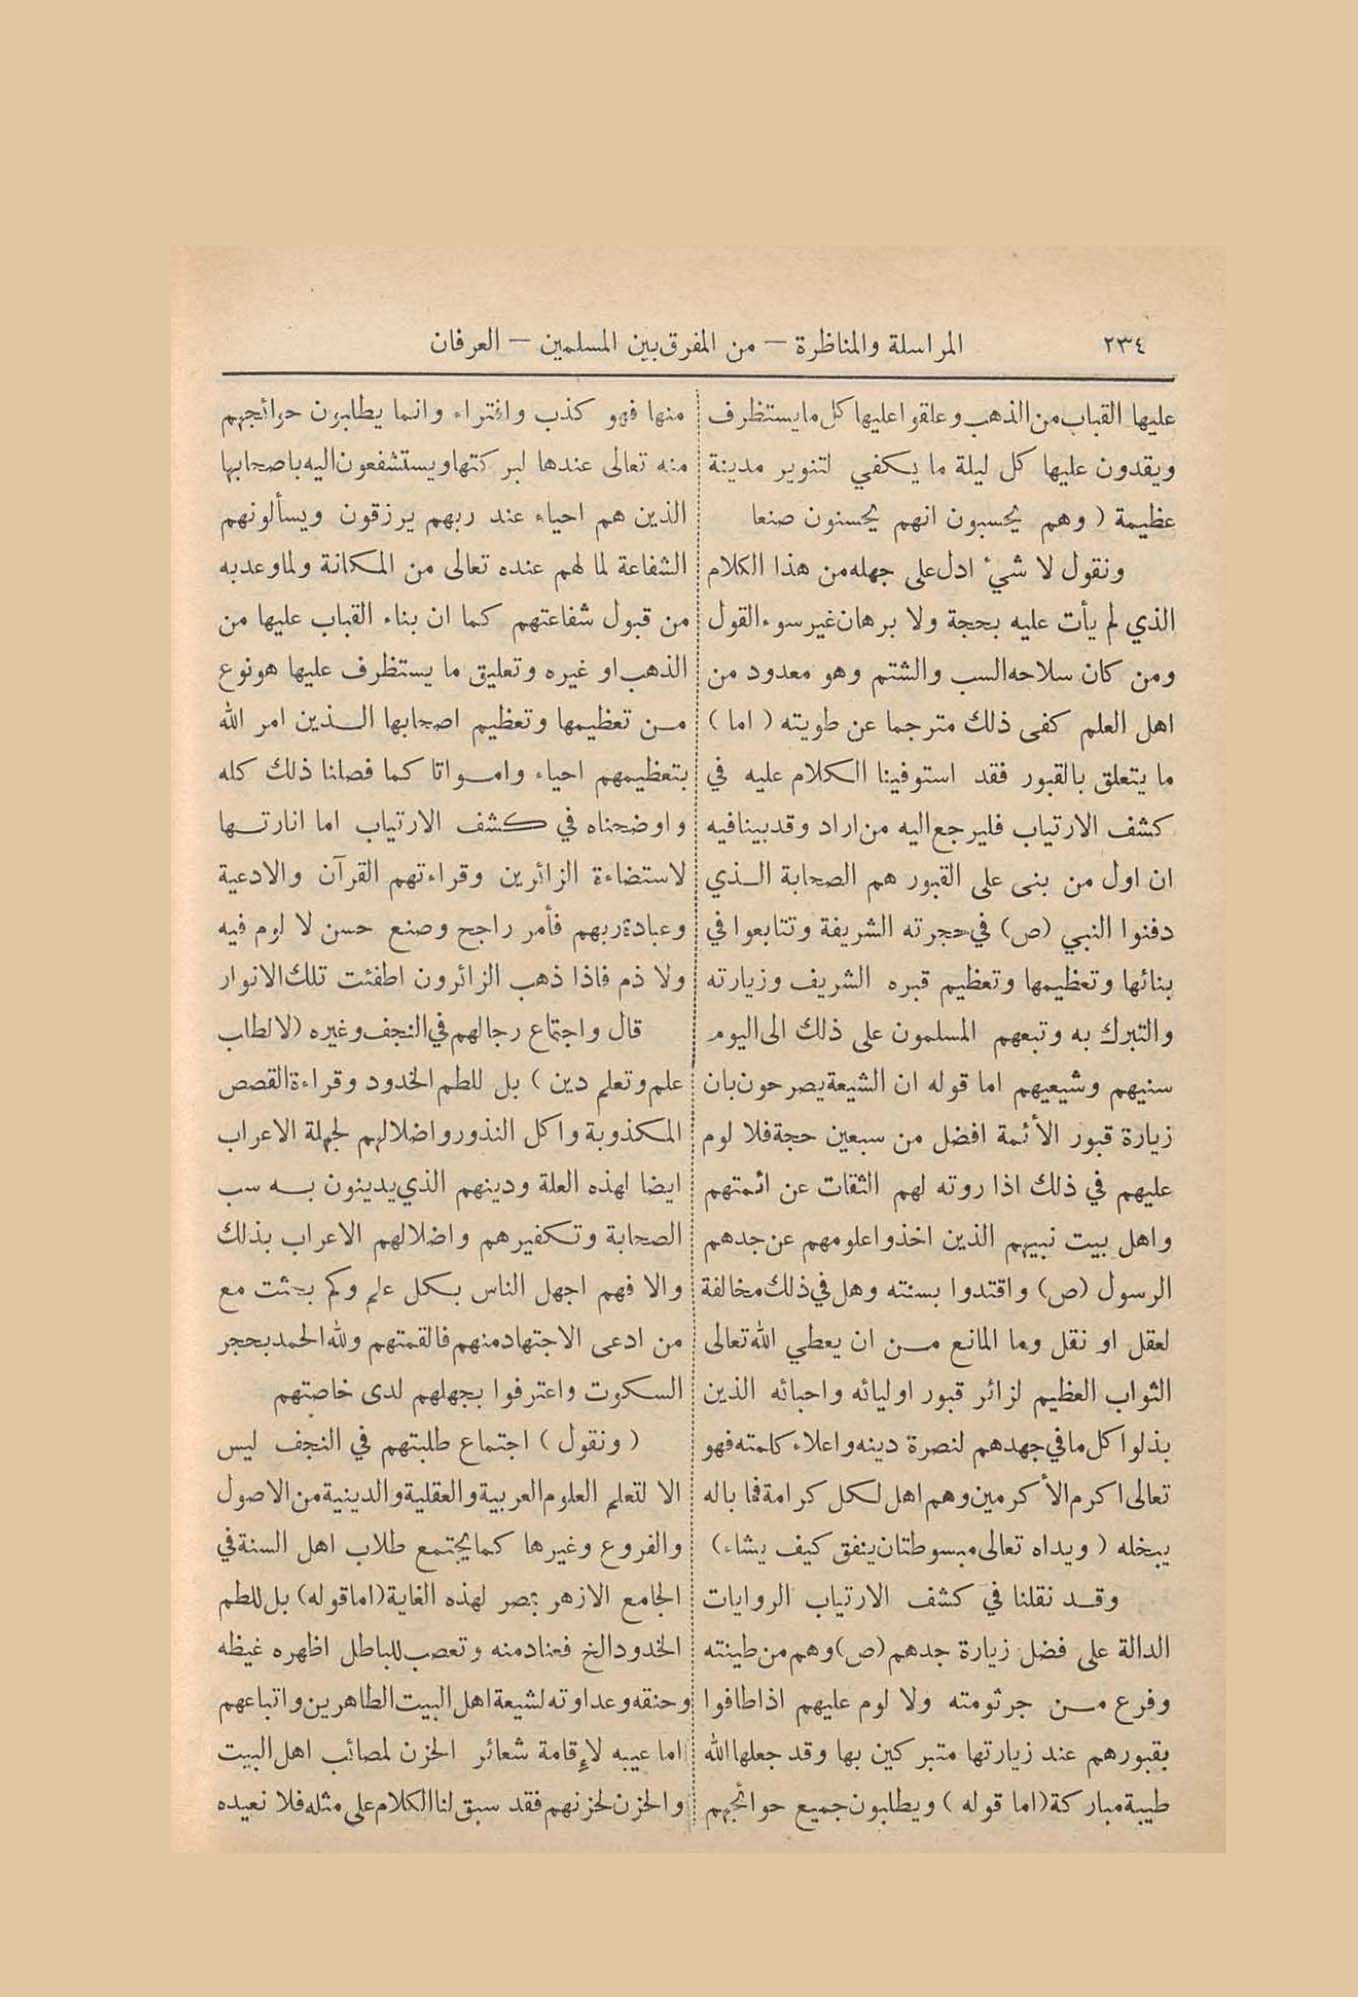 ٢٣٤
المراسلة والمناظرة — من المفرق بين المسلمين — العرفان
عليها القباب من الذهب وعلقوا عليها كل ما يستظرف
ويقدون عليها كل ليلة ما يكفي لتنوير مدينة
عظيمة ( وهم يحسبون انهم يحسنون صنعا
ونقول لا شيء ادل على جهله من هذا الكلام
الذي لم يأت عليه بحجة ولا برهان غير سوء القول
ومن كان سلاحه السب والشتم وهو معدود من
اهل العلم كفى ذلك مترجما عن طويته ( اما )
ما يتعلق بالقبور فقد استوفينا الكلام عليه في
كشف الارتياب فليرجع اليه من اراد وقد بينا فيه
ان اول من بنى على القبور هم الصحابة الذي
دفنوا النبي (ص) في حجرته الشريفة وتتابعوا في
بنائها وتعظيمها وتعظيم قبره الشريف وزيارته
والتبرك به وتبعهم المسلمون على ذلك الى اليوم
سنيهم وشيعيهم اما قوله ان الشيعة يصرحون بان
زيارة قبور الأئمة افضل من سبعين حجة فلا لوم
عليهم في ذلك اذا روته لهم الثقات عن ائمتهم
واهل بيت نبيهم الذين اخذوا علومهم عن جدهم
الرسول (ص) واقتدوا بسنته وهل في ذلك مخالفة
لعقل او نقل وما المانع من ان يعطي الله تعالى
الثواب العظيم لزائر قبور اوليائه واحبائه الذين
بذلوا كل ما في جهدهم لنصرة دينه واعلاء كلمته فهو
تعالى اكرم الأكرمين وهم اهل لكل كرامة فما باله
يبخله ( ويداه تعالى مبسوطتان ينفق كيف يشاء )
وقد نقلنا في كشف الارتياب الروايات
الدالة على فضل زيارة جدهم (ص) وهم من طينته
وفرع من جرثومته ولا لوم عليهم اذا طافوا
بقبورهم عند زيارتها متبركين بها وقد جعلها الله
طيبة مباركة (اما قوله ) ويطلبون جميع حوائجهم
منها فهو كذب وافتراء وانما يطلبون حوائجهم
منه تعالى عندها لبركتها ويستشفعون اليه باصحابها
الذين هم احياء عند ربهم يرزقون ويسألونهم
الشفاعة لما لهم عنده تعالى من المكانة ولما وعد به
من قبول شفاعتهم كما ان بناء القباب عليها من
الذهب او غيره وتعليق ما يستظرف عليها هو نوع
من تعظيمها وتعظيم اصحابها الذين امر الله
بتعظيمهم احياء وامواتا كما فصلنا ذلك كله
واوضحناه في كشف الارتياب اما انارتها
لاستضاءة الزائرين وقراءتهم القرآن والادعية
وعبادة ربهم فأمر راجح وصنع حسن لا لوم فيه
ولا ذم فاذا ذهب الزائرون اطفئت تلك الانوار
قال واجتماع رجالهم في النجف وغيره (لا لطلب
علم وتعلم دين ) بل للطم الخدود وقراءة القصص
المكذوبة واكل النذور واضلالهم لجهلة الاعراب
ايضا لهذه العلة ودينهم الذي يدينون به سب
الصحابة وتكفيرهم واضلالهم الاعراب بذلك
والا فهم اجهل الناس بكل علم وكم بحثت مع
من ادعى الاجتهاد منهم فالقمتهم ولله الحمد بحجر
السكوت واعترفوا بجهلهم لدى خاصتهم
( ونقول ) اجتماع طلبتهم في النجف ليس
الا لتعلم العلوم العربية والعقلية والدينية من الاصول
والفروع وغيرها كما يجتمع طلاب اهل السنة في
الجامع الازهر بمصر لهذه الغاية (اما قوله) بل للطم
الخدود الخ فعناد منه وتعصب للباطل اظهره غيظه
وحنقه وعداوته لشيعة اهل البيت الطاهرين واتباعهم
اما عيبه لإقامة شعائر الحزن لمصائب اهل البيت
والحزن لحزنهم فقد سبق لنا الكلام على مثله فلا نعيده